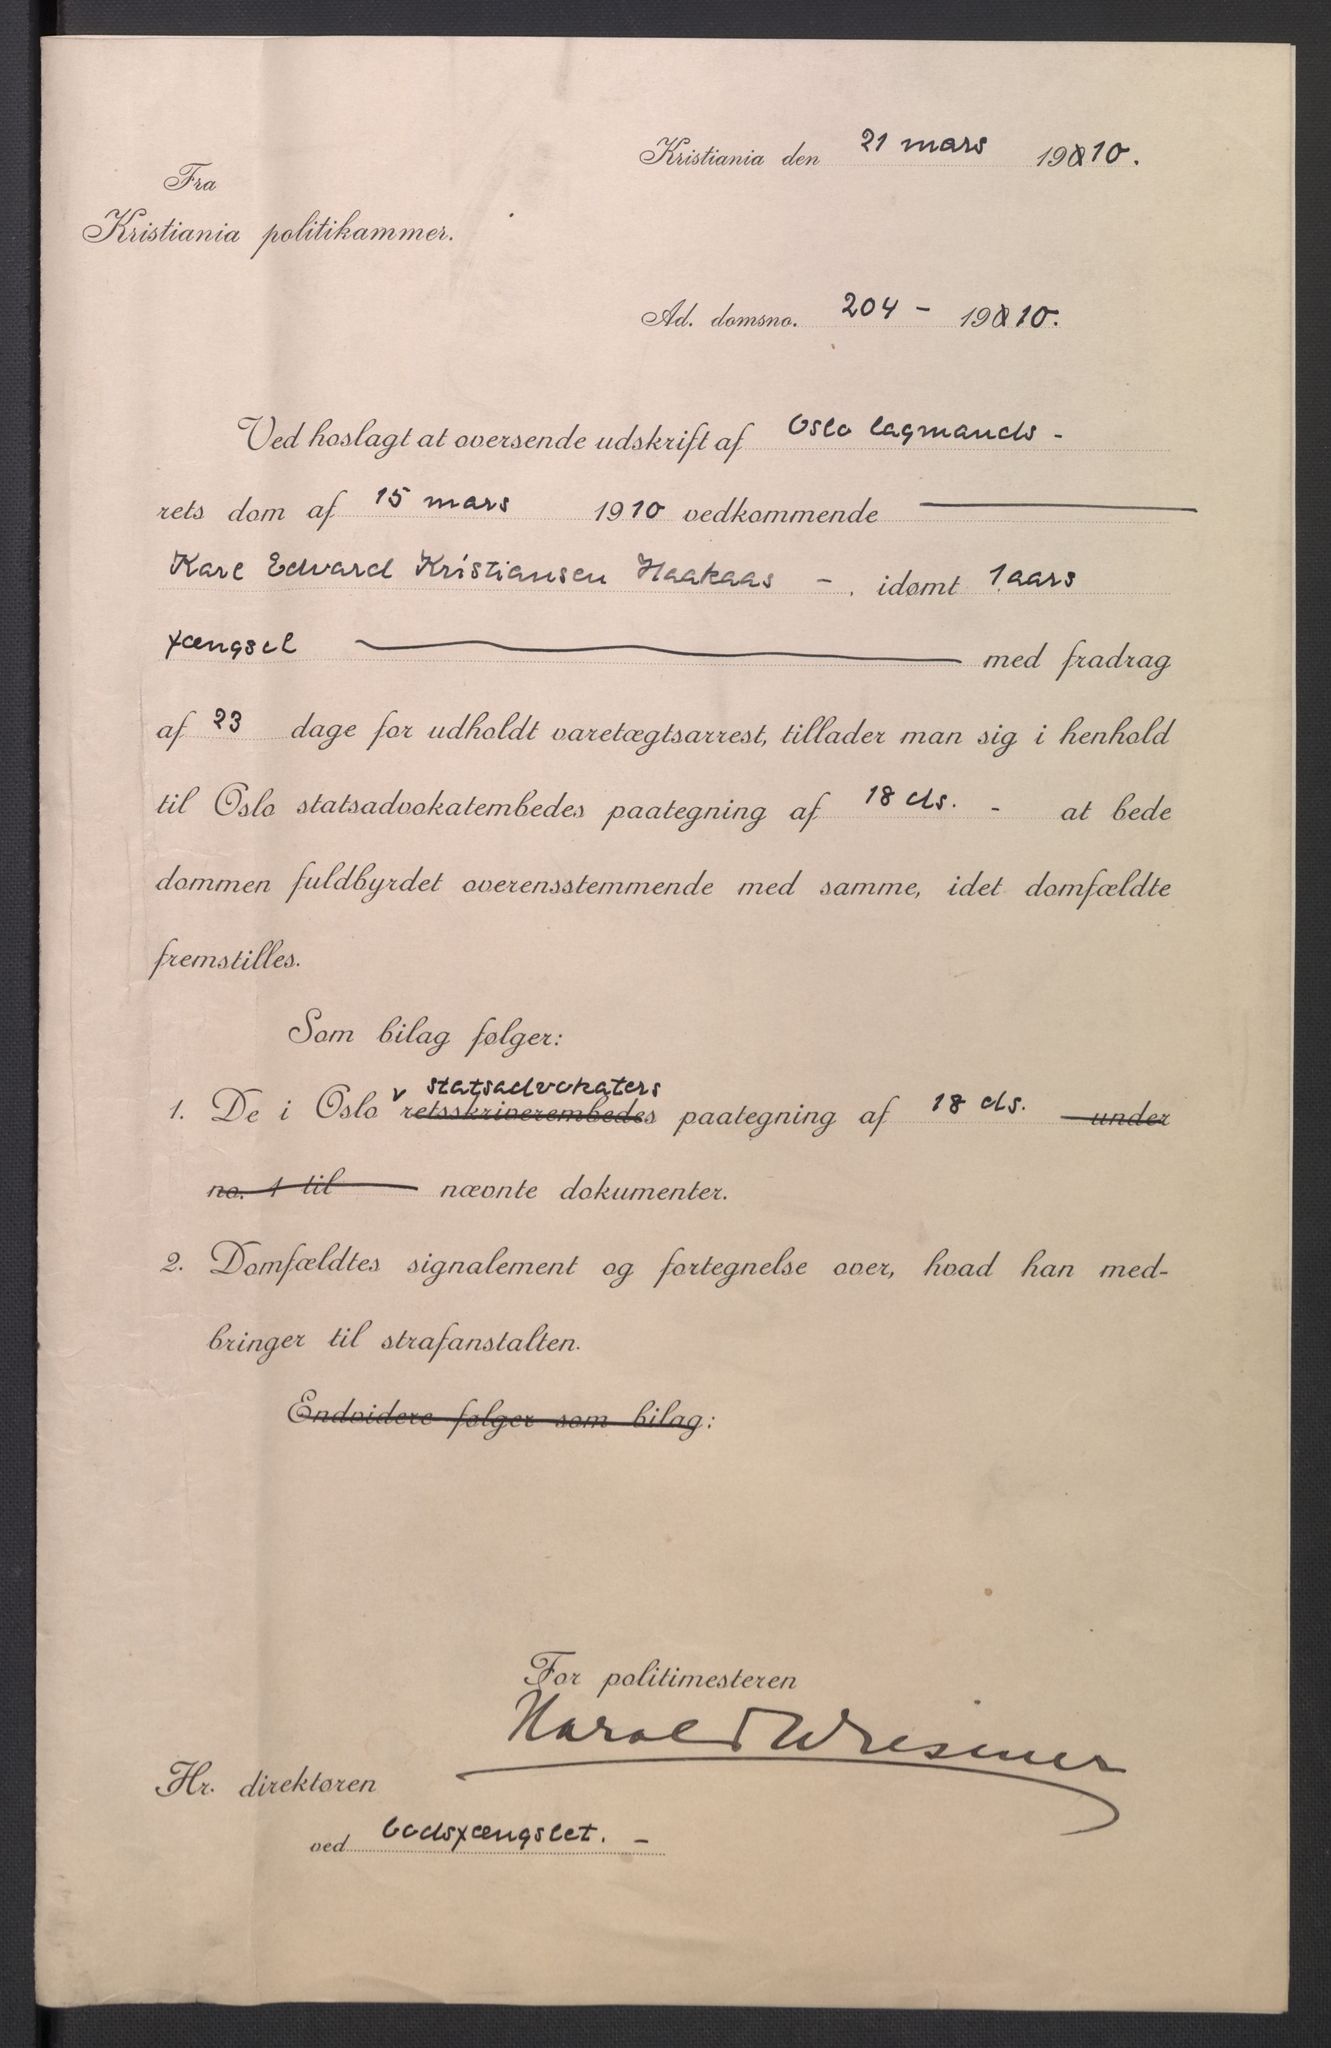 Kristiania den 21 mars 1910.
Fra
Kristiania politikammer.
Ad. domsno. 204 - 1910.
Ved hoslagt at oversende udskrift af Oslo lagmands-
rets dom af 15 mars 1910 vedkommende
Karl Edvard Kristiansen Haakaas -. idømt 1 aars
fængsel med fradrag
af 23 dage for udholdt varetægtsarrest, tillader man sig i henhold
til Oslo statsadvokatembedes paategning af 18 ds. - at bede
dommen fuldbyrdet overensstemmende med samme, idet domfældte
fremstilles.
Som bilag følger:
statsadvokaters
1. De i Oslo retsskriverembedes paategning af 18 ds. under
no. 1 til nævnte dokumenter.
2. Domfældtes signalement og fortegnelse over, hvad han med-
bringer til strafanstalten.
Endvidere følger som bilag:
For politimesteren
Harald
Hr. direktøren
ved bodsfængslet. -